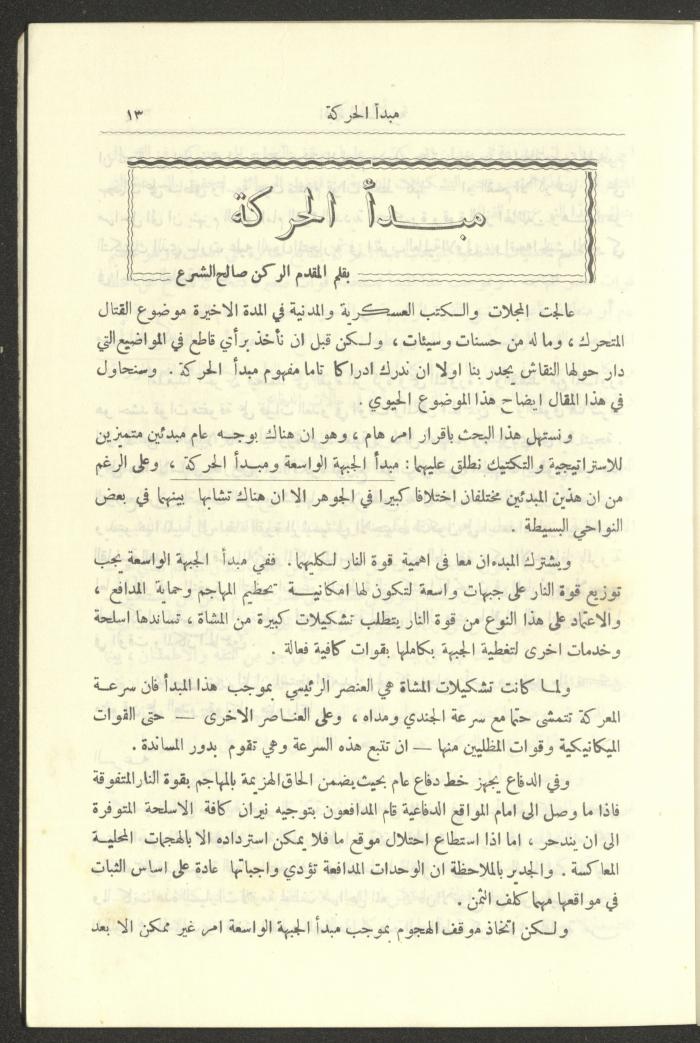 مبدأ الحركة
١٣
مبـــدأ الحركة
بقلم المقدم الركن صالح الشرع
عالجت المجلات والـكتب العسكرية والمدنية في المدة الاخيرة موضوع القتال
المتحرك ، وما له من حسنات وسيئات ، ولـكن قبل ان نأخذ برأي قاطع في المواضيع التي
دار حولها النقاش يجدر بنا اولا ان ندرك ادراكا تاما مفهوم مبدأ الحركة . وسنحاول
في هذا المقال ايضاح هذا الموضوع الحيوي .
ونستهل هذا البحث باقرار امر هام ، وهو ان هناك بوجـه عام مبدئين متميزين
للاستراتيجية والتكتيك نطلق عليهما : مبدأ الجبهة الواسعة ومبـدأ الحركة ، وعلى الرغم
من ان هذين المبدئين مختلفان اختلافا كبيرا في الجوهر الا ان هناك تشابها بينهما في بعض
النواحي البسيطة .
ويشترك المبدءان معا في اهمية قوة النار لـكليهما . ففي مبدأ الجبهة الواسعة يجب
توزيع قوة النار على جبهات واسعة لتكون لها امكانيـــة تحطيم المهاجم وحماية المدافع ،
والاعتماد على هذا النوع من قوة النار يتطلب تشكيلات كبيرة من المشاة ، تساندها اسلحة
وخدمات اخرى لتغطية الجبهة بكاملها بقوات كافية فعالة .
ولمـا كانت تشكيلات المشاة هي العنصر الرئيسي بموجب هذا المبدأ فان سرعـة
المعركة تتمشى حتما مع سرعة الجندي ومداه ، وعلى العنـاصر الاخرى — حتى القوات
الميكانيكية وقوات المظليين منها — ان تتبع هذه السرعة وهي تقوم بدور المساندة .
وفي الدفاع يجهز خط دفاع عام بحيث يضمن الحاق الهزيمة بالمهاجم بقوة النار المتفوقة
فاذا ما وصل الى امام المواقع الدفاعية قام المدافعون بتوجيه نيران كافة الاسلحة المتوفرة
الى ان يندحر ، اما اذا استطاع احتلال موقع ما فلا يمكن استرداده الا بالهجمات المحليـة
المعاكسة . والجدير بالملاحظة ان الوحدات المدافعة تؤدي واجباتها عادة على اساس الثبات
في مواقعها مهما كلف الثمن .
ولـكن اتخاذ موقف الهجوم بموجب مبدأ الجبهة الواسعة امر غير ممكن الا بعد